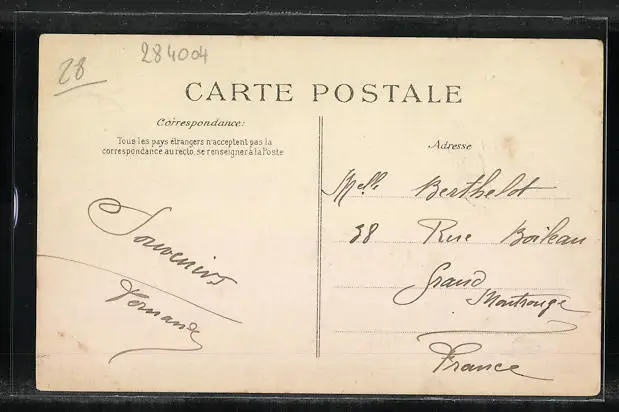 284004
28
CARTE POSTALE
Correspondance:
Tous les pays étrangers n'acceptent pas la
correspondance au recto, se renseigner à la Poste
Souvenirs
Fernande
Adresse
Melle Berthelot
38 Rue Boileau
Grand
Montrouge
France